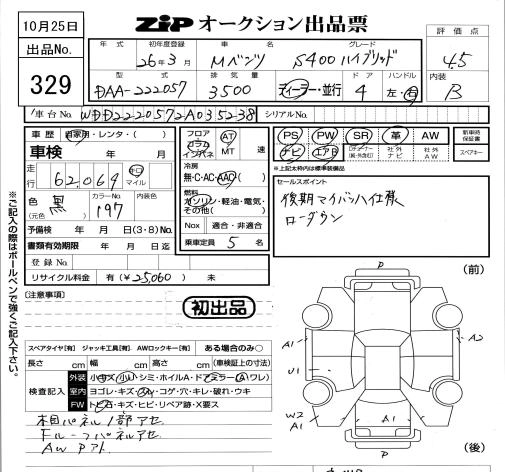 10月25日
ZIP オークション出品票
出品No.
329
評価点
4.5
内装
B
年式
初年度登録
26年3月
車名
Mベンツ
グレード
S400ハイブリッド
型式
DAA-222057
排気量
3500
ディーラー・並行
ドア
4
ハンドル
左・右
車台No. WDD2220572A035238
シリアルNo.
車歴 自家用・レンタ・( )
車検 年 月
走行 62,069 km マイル
色(元色) 黒
カラーNo. 197
内装色
予備検 年 月 日(3・8)No.
書類有効期限 年 月 日迄
登録No.
リサイクル料金 有(¥25,060) 未
フロア コラム インパネ
AT MT 速
冷房
無・C・AC・AAC
燃料
ガソリン・軽油・電気・その他( )
Nox 適合・非適合
乗車定員 5 名
PS PW SR 革 AW
ナビ エアB 社外ナビ 社外AW
新車時保証書
スペアキー
※上記太枠内は標準装備品
セールスポイント
後期マイバッハ仕様
ローダウン
※ご記入の際はボールペンで強くご記入下さい。
[注意事項]
初出品
スペアタイヤ[有] ジャッキ工具[有] AWロックキー[有] ある場合のみ○
長さ cm 幅 cm 高さ cm (車検証上の寸法)
検査記入
外装 小キズ・小凹・シミ・ホイルA・ドアミラー(A・ワレ)
室内 ヨゴレ・キズ・スレ・コゲ・穴・キレ・破れ・ウキ
FW トビ石・キズ・ヒビ・リペア跡・X要ス
木目パネル1部アセ
Fルーフパネルアセ
AW Pアト
(前)
P
A1
A2
U1
W2
A1
A1
P
(後)